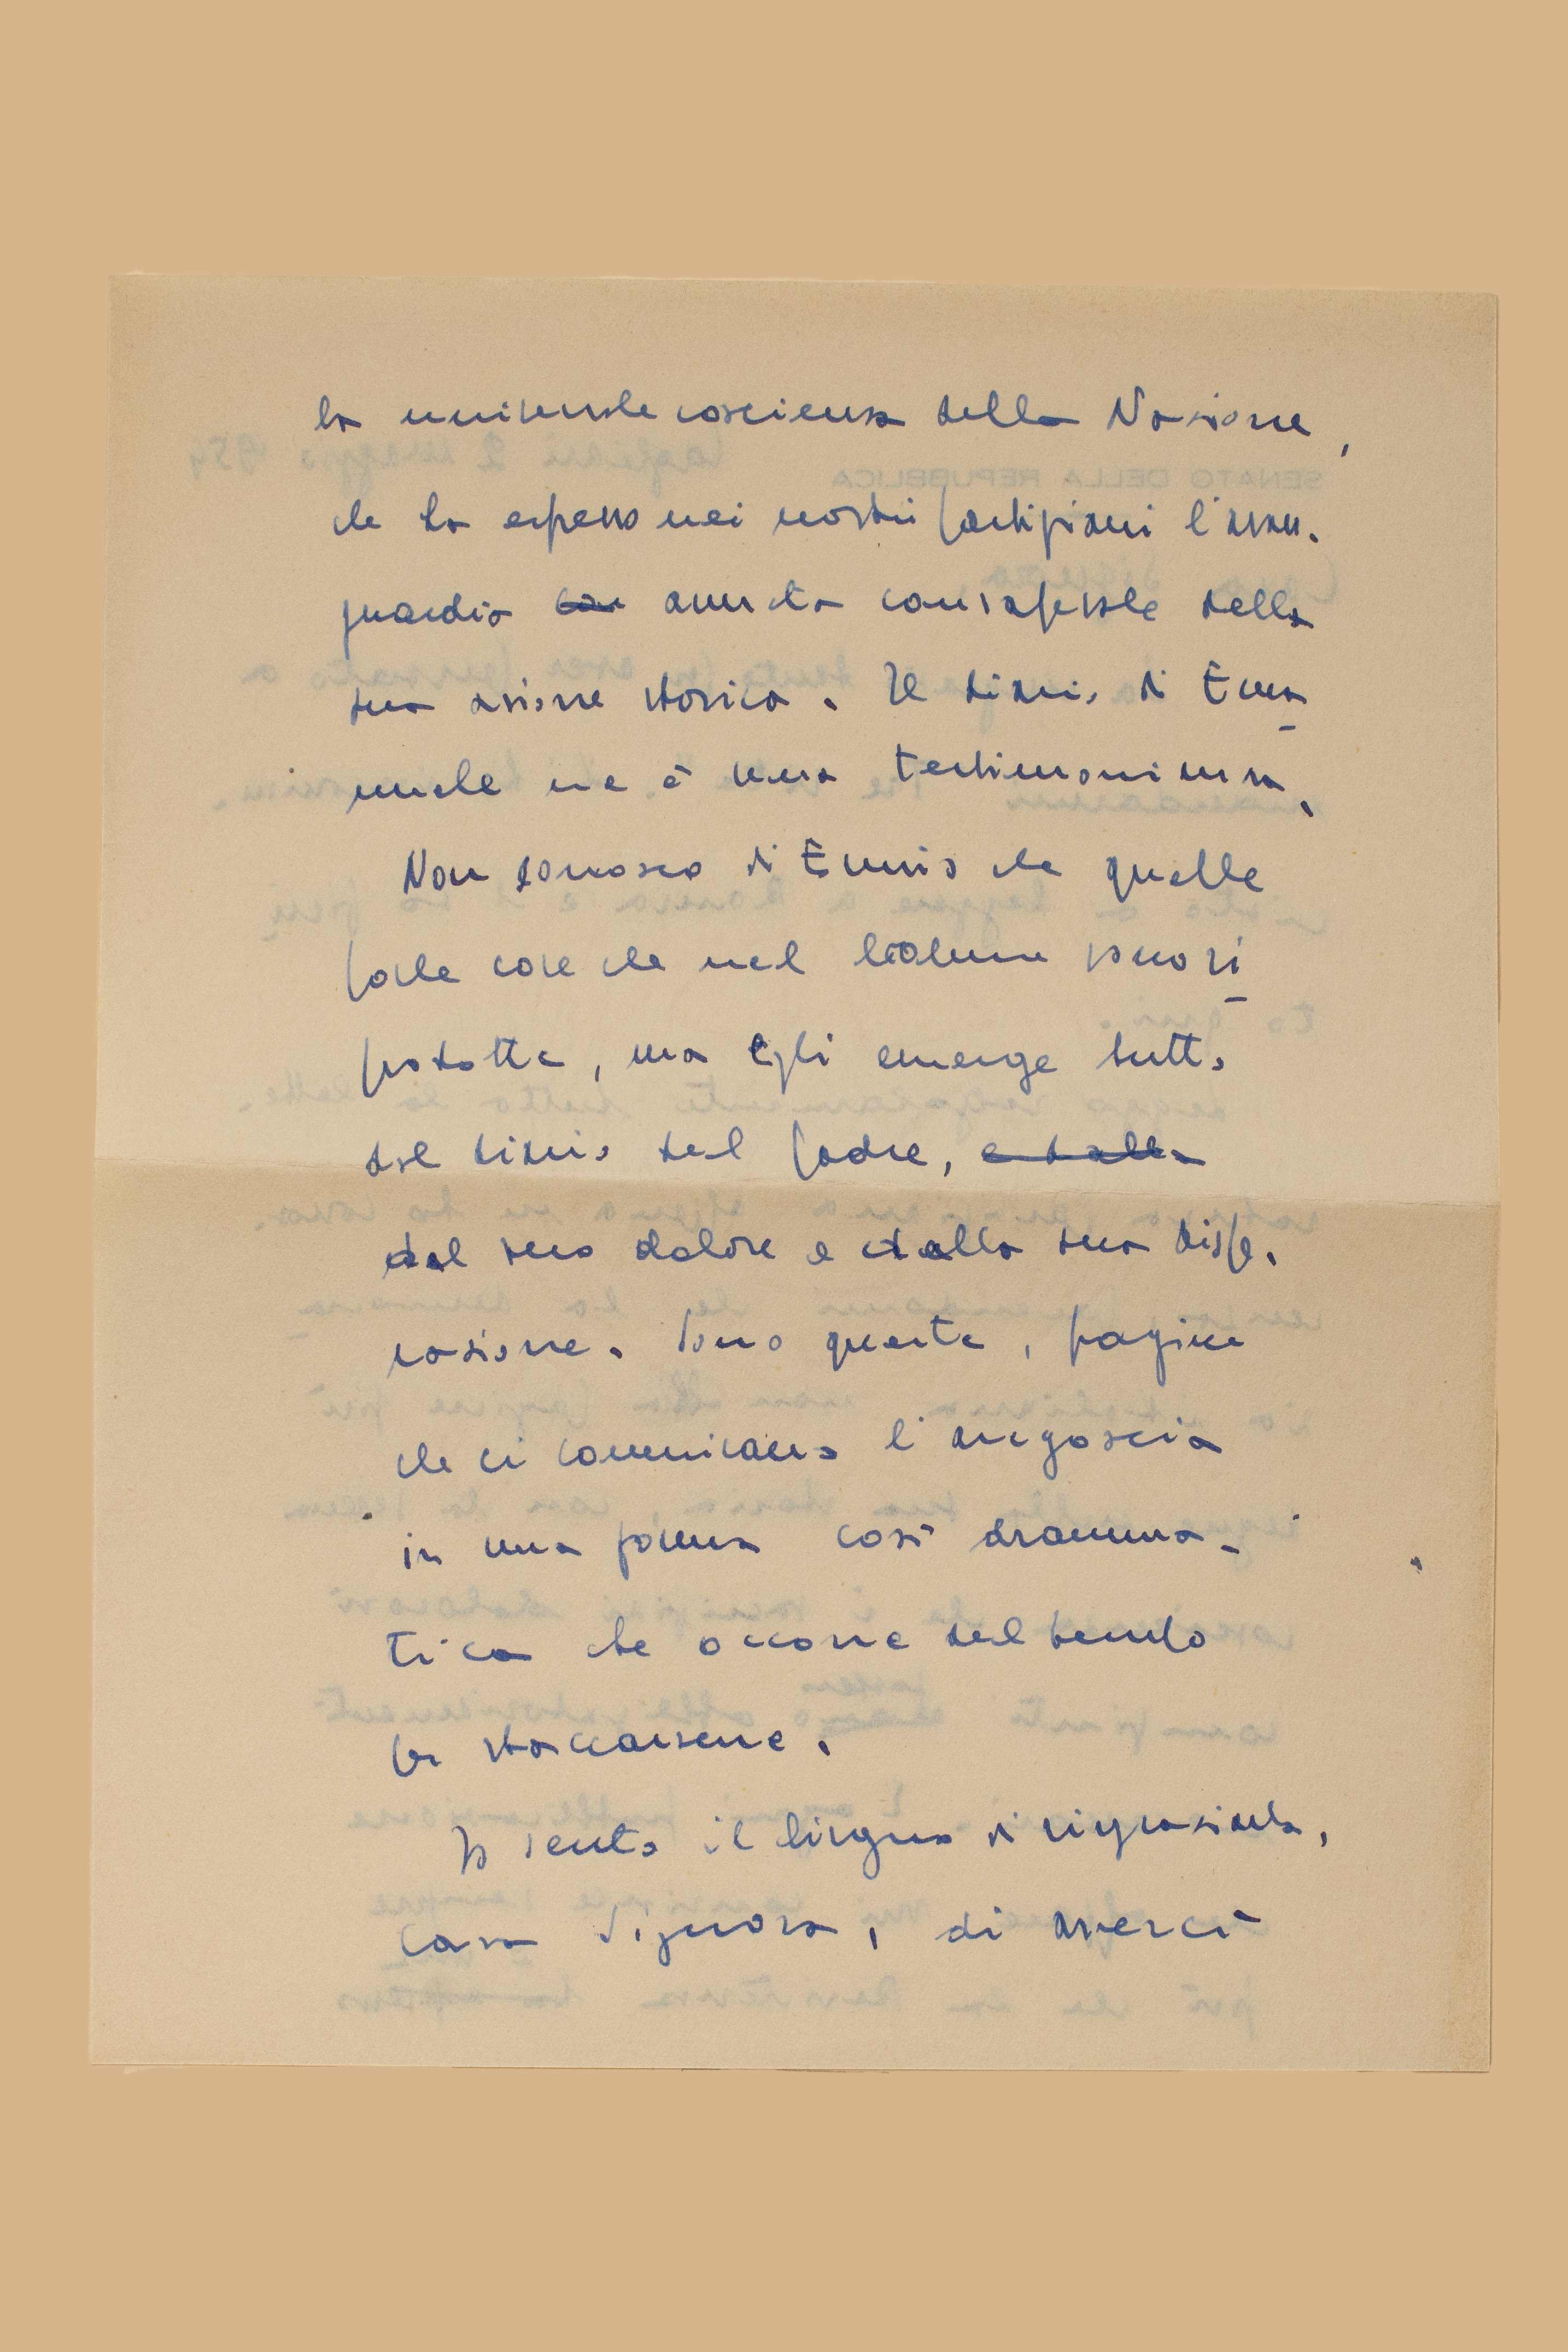 la universale coscienza della Nazione,
che ha espresso nei nostri partigiani l'avan.
guardia con armata consapevole della
sua azione storica. Il diario di Ema
nuele ne è una testimonianza.
Non conosco di Ennio che quelle
poche cose che nel volume sono ri
prodotte, ma Egli emerge tutto
dal diario del padre, e dalla
dal suo dolore e dalla sua dispe.
razione. Sono queste, pagine
che ci comunicano l'angoscia
in una forma così dramma-
tica che occorre del tempo
per staccarsene.
Io sento il bisogno di ringraziarla,
cara Signora, di averci